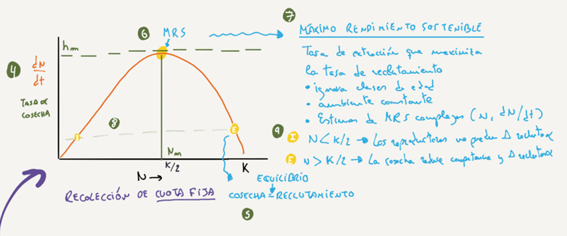 6
MRS
hm
4
dN
dt
TASA DE
COSECHA
8
I
E
Nm
K/2
K
N →
RECOLECCIÓN DE CUOTA FIJA
EQUILIBRIO
COSECHA = RECLUTAMIENTO
5
7
MÁXIMO RENDIMIENTO SOSTENIBLE
Tasa de extracción que maximiza
la tasa de reclutamiento
• ignora clases de edad
• ambiente constante
• Estimar da MRS complejas (N, dN/dt)
9
I N < K/2 → Los reproductores no pueden Δ reclutas
E N > K/2 → La cosecha reduce competencia y Δ reclutas